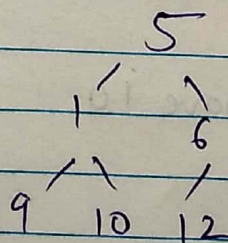 5
1 6
9 10 12